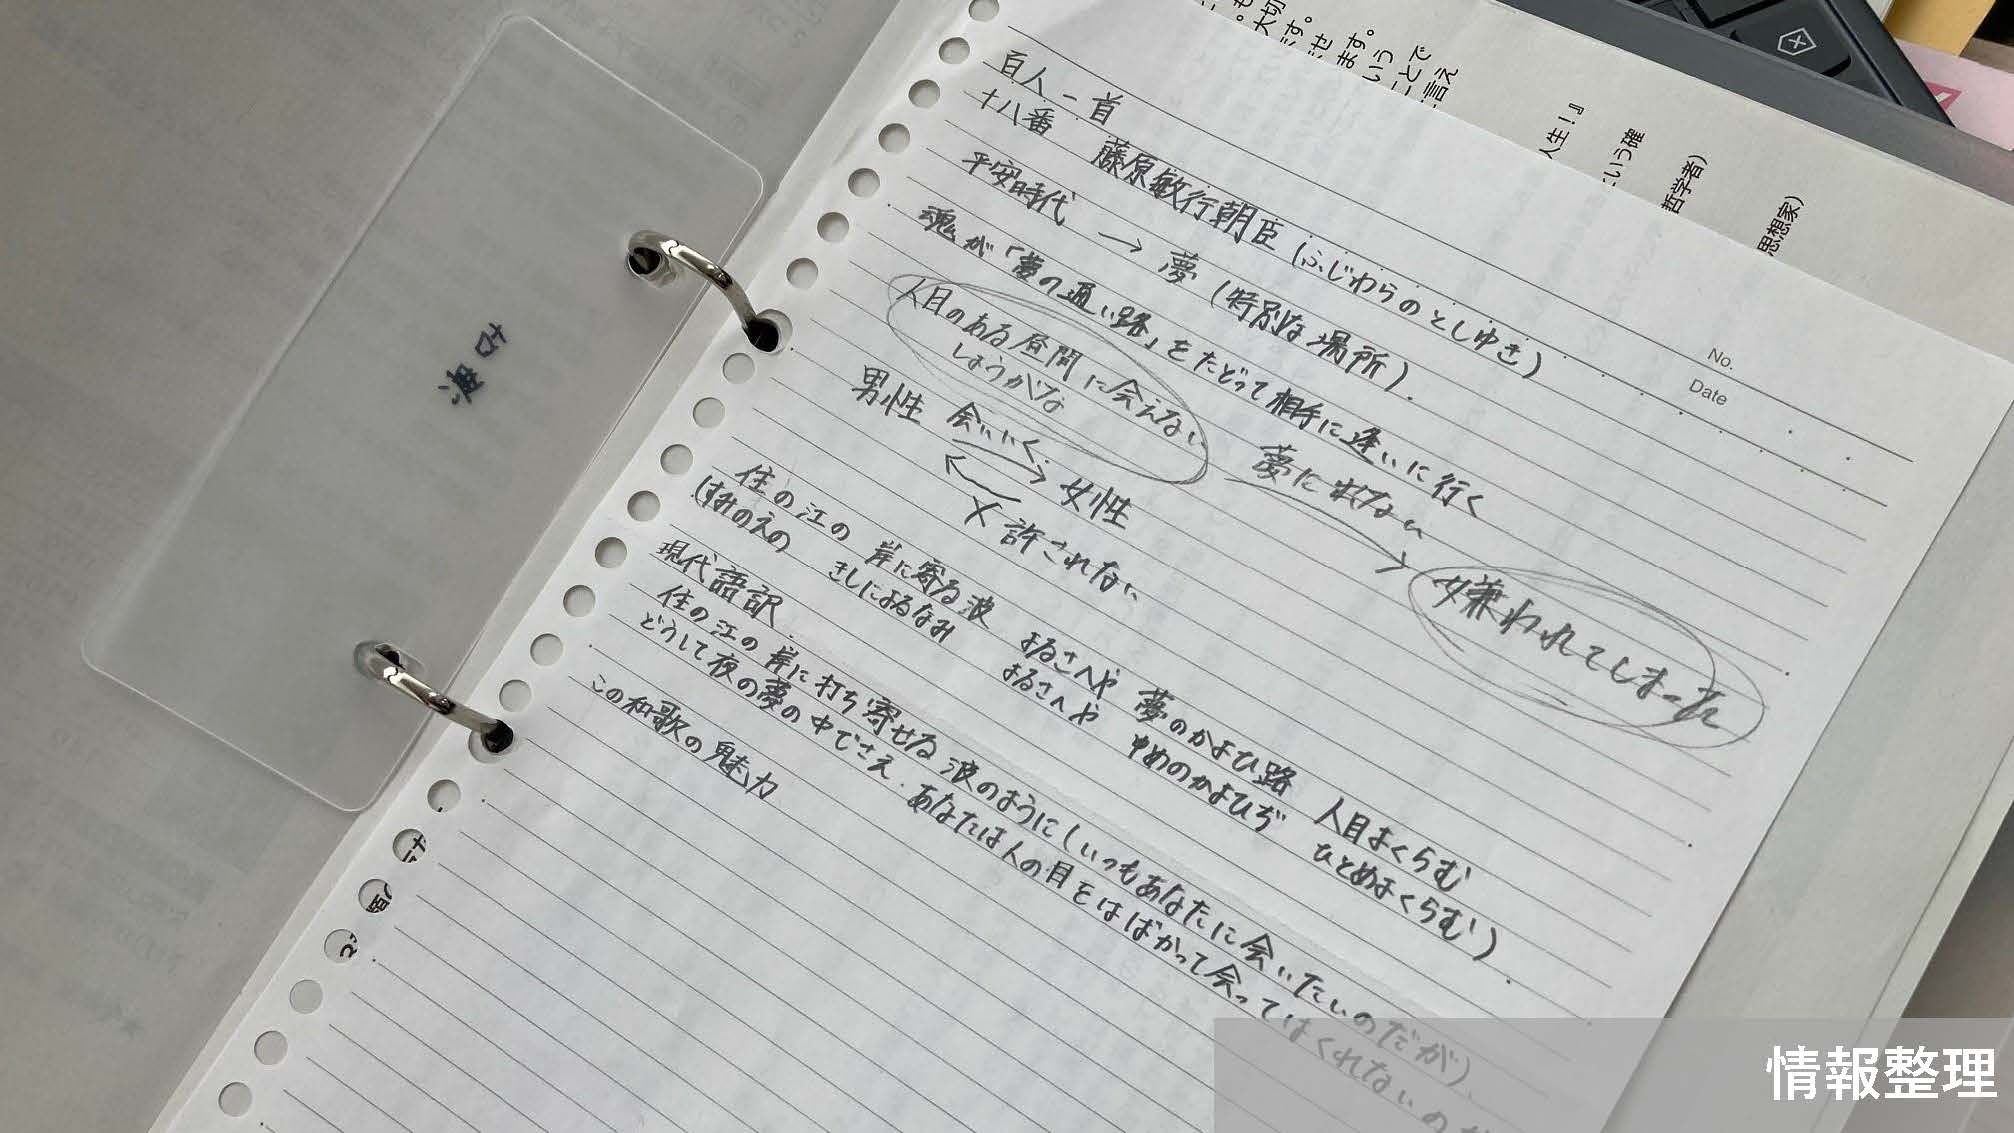 百人一首
十八番 藤原敏行朝臣(ふじわらのとしゆき)
平安時代 → 夢(特別な場所).
魂が「夢の通い路」をたどって相手に逢いに行く
人目のある昼間に会えない
しょうがな
夢に出てない
嫌われてしまった
男性 会いいく 女性
× 許されない
住の江の 岸に寄る波 よるさへや 夢のかよひ路 人目よくらむ
(すみのえの きしによるなみ よるさへや ゆめのかよひぢ ひとめよくらむ)
現代語訳
住の江の岸に打ち寄せる波のように(いつもあなたに会いたいのだが)
どうして夜の夢の中でさえ、あなたは人の目をはばかって会ってはくれないのだ
この和歌の魅力
古典
No.
Date
大切
です。
ます。
いう
ことで
言え
人生!』
という確
哲学者)
思想家)
情報整理